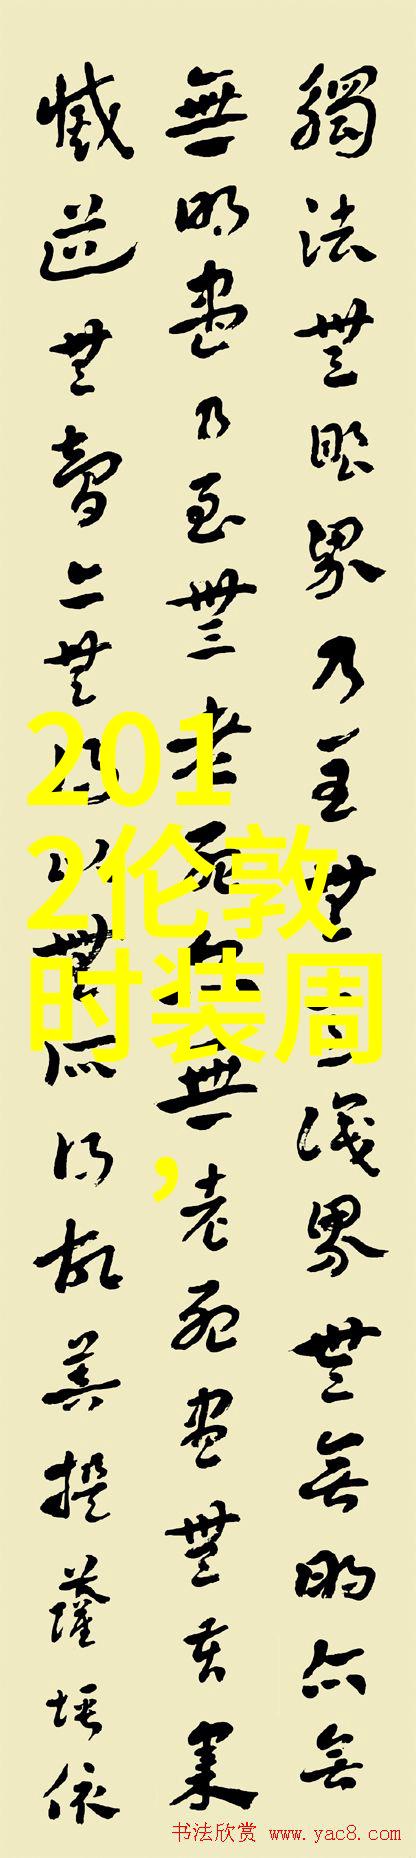 觸法無眼界乃至無意識界無無明亦無
無明盡乃至無老死亦無老死盡無苦集
滅道無智亦無得以無所得故菩提薩埵依
201
2伦敦
时装周
，
书法欣赏 www.yac8.com